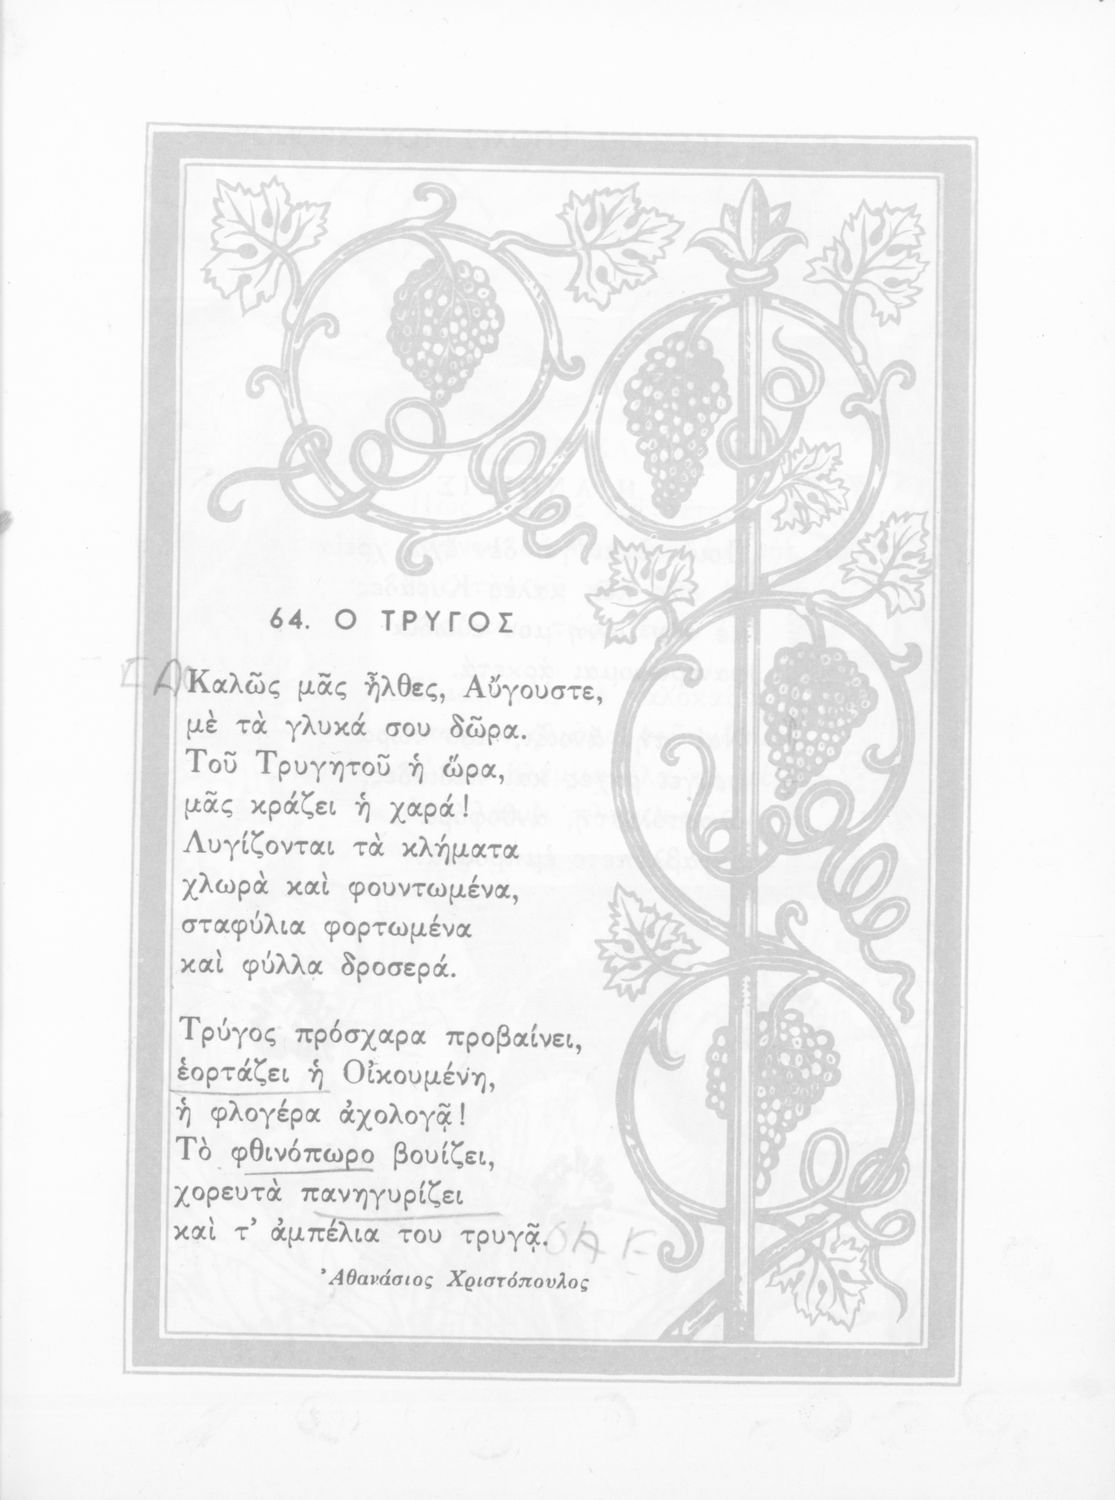 64. Ο ΤΡΥΓΟΣ
Καλῶς μᾶς ἦλθες, Αὔγουστε,
μὲ τὰ γλυκά σου δῶρα.
Τοῦ Τρυγητοῦ ἡ ὥρα,
μᾶς κράζει ἡ χαρά!
Λυγίζονται τὰ κλήματα
χλωρὰ καὶ φουντωμένα,
σταφύλια φορτωμένα
καὶ φύλλα δροσερά.
Τρύγος πρόσχαρα προβαίνει,
ἑορτάζει ἡ Οἰκουμένη,
ἡ φλογέρα ἀχολογᾷ!
Τὸ φθινόπωρο βουίζει,
χορευτὰ πανηγυρίζει
καὶ τ' ἀμπέλια του τρυγᾷ.
Ἀθανάσιος Χριστόπουλος